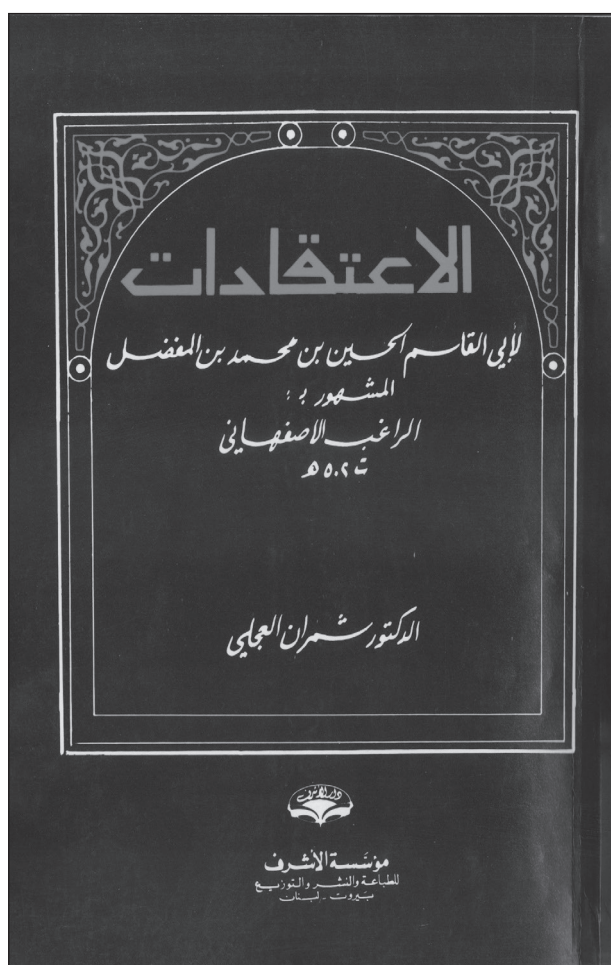 الاعتقادات
لأبي القاسم الحسين بن محمد بن المفضل
المشهور بـ :
الراغب الاصفهاني
ت ٥٠٢ هـ
الدكتور شمران العجلي
دار الأشرف
مؤسسة الأشرف
للطباعة والنشر والتوزيع
بيروت - لبنان